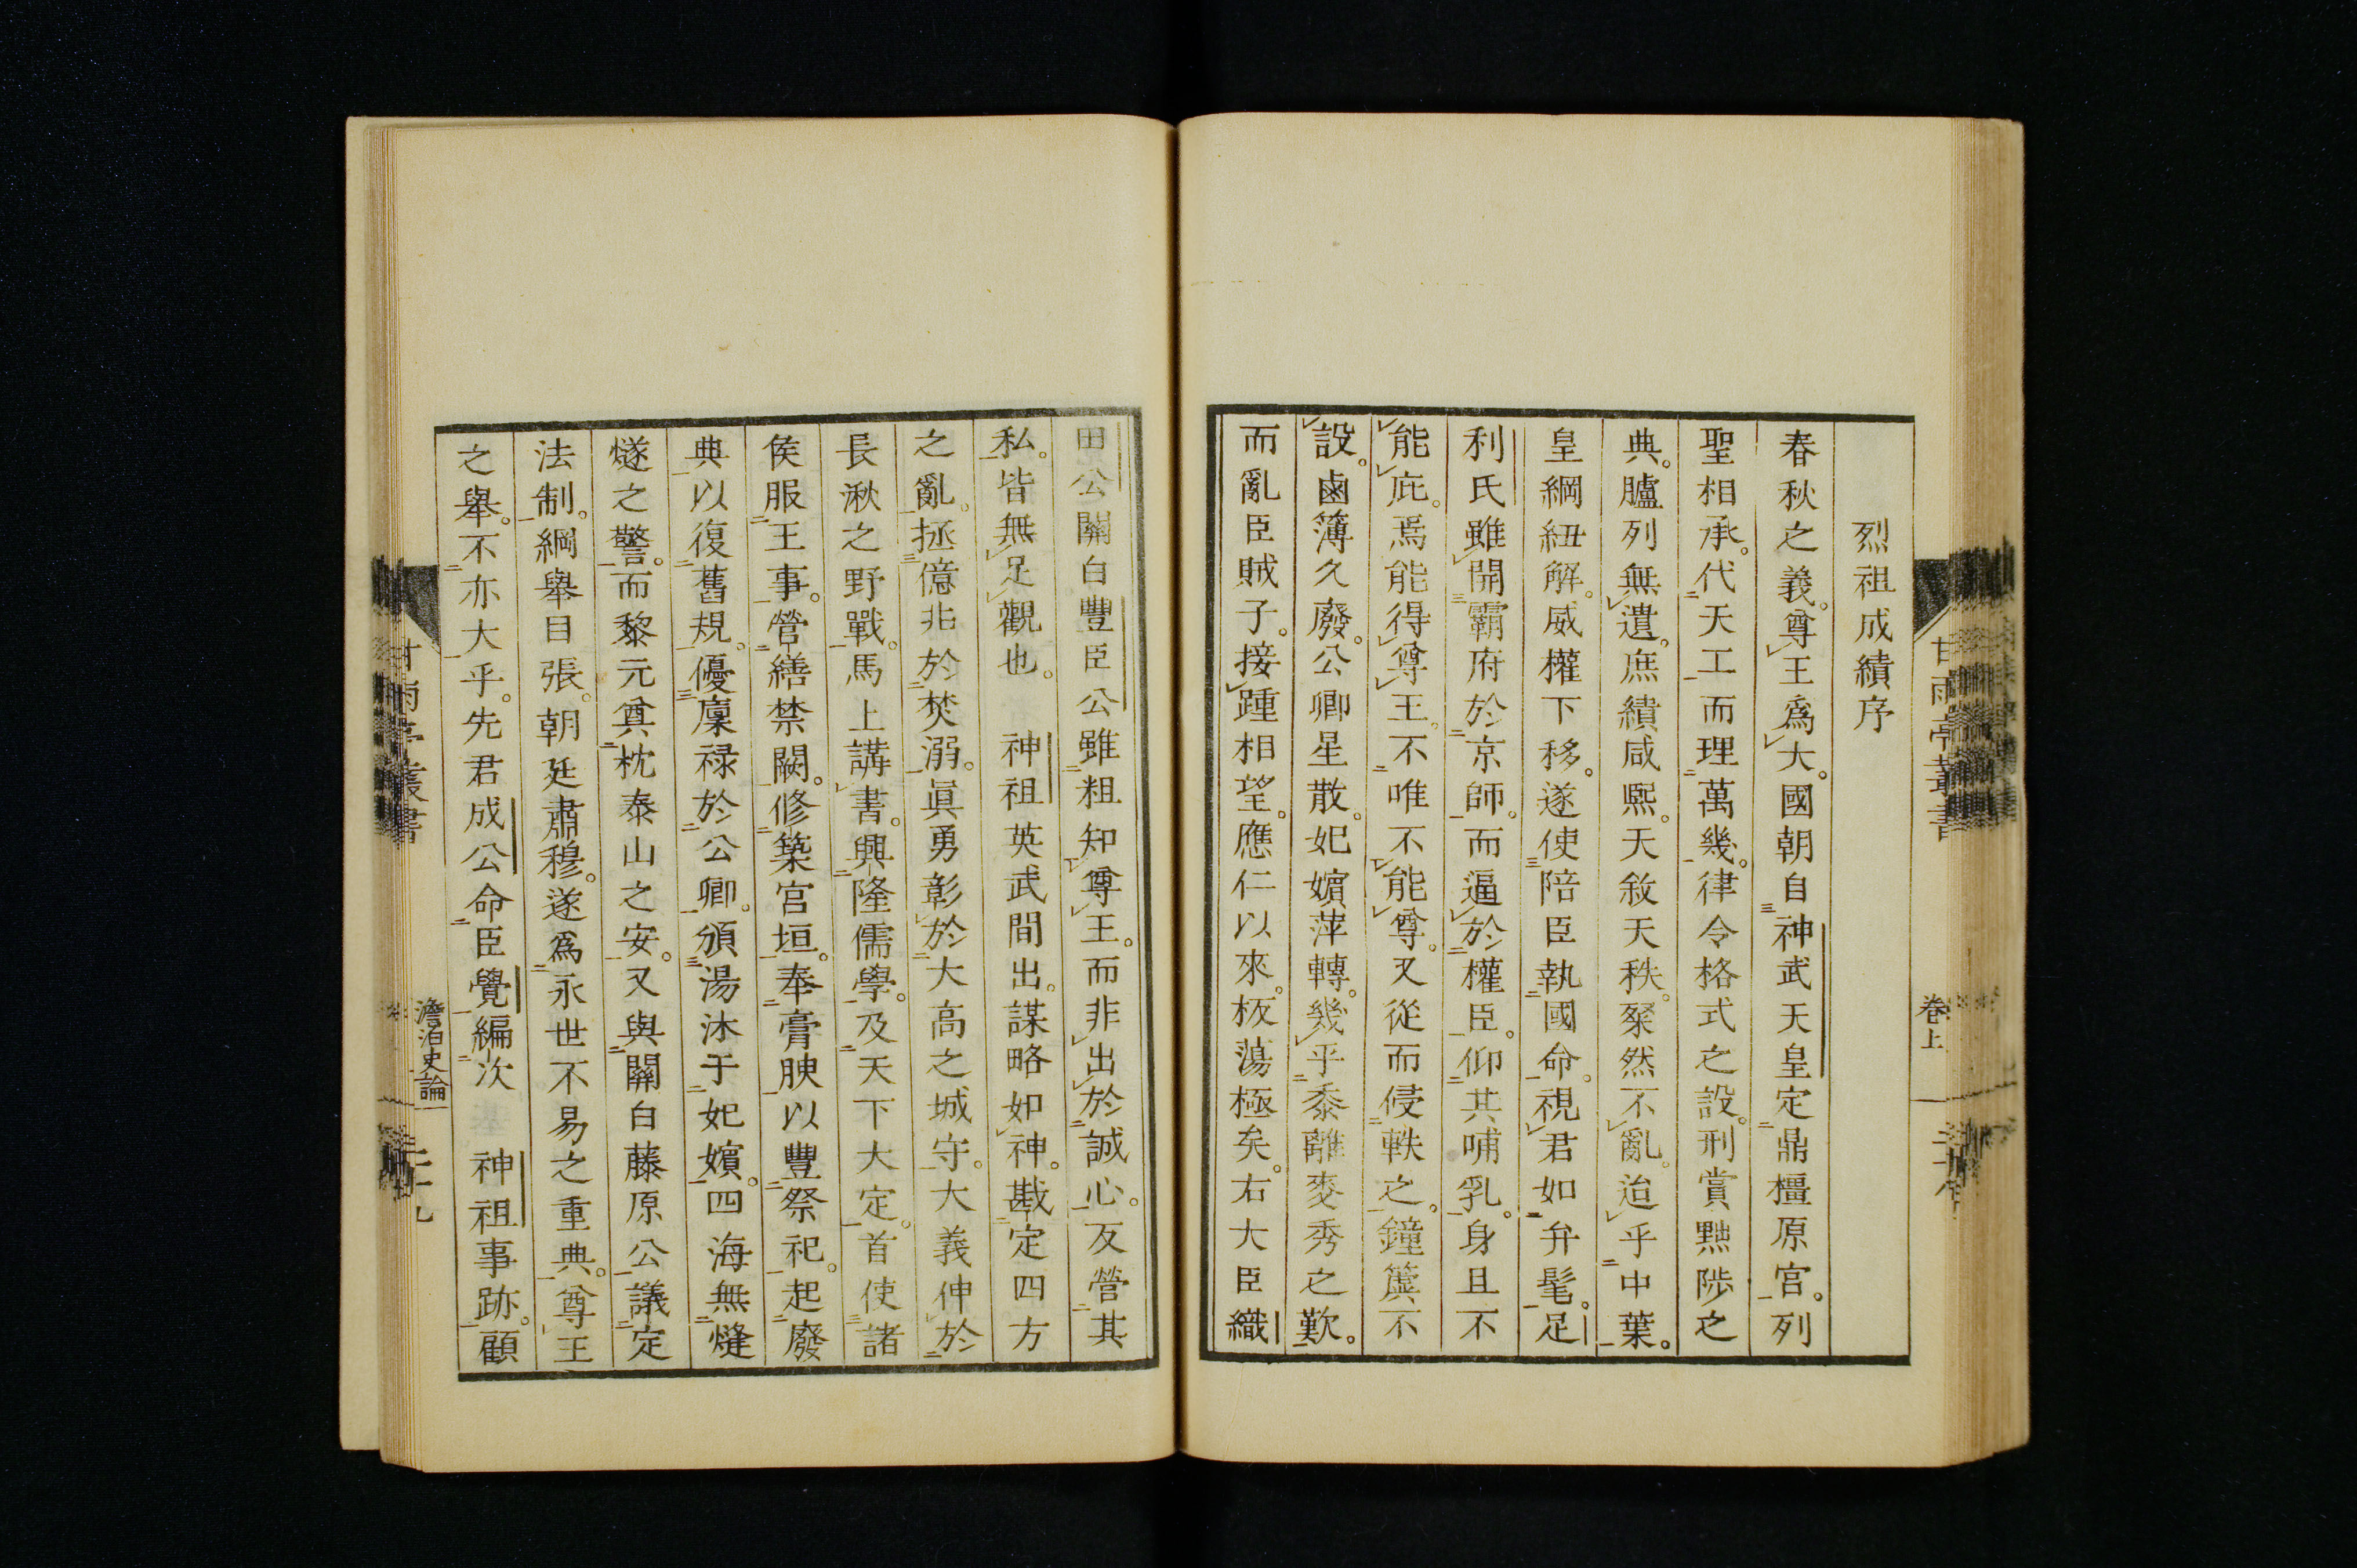 烈祖成績序
春秋之義。尊王爲大。國朝自神武天皇定鼎橿原宮。列
聖相承。代天工而理萬幾。律令格式之設。刑賞黜陟之
典。臚列無遺。庶績咸熙。天敘天秩。粲然不亂。迨乎中葉。
皇綱紐解。威權下移。遂使陪臣執國命。視君如弁髦。足
利氏雖開霸府於京師。而逼於權臣。仰其哺乳。身且不
能庇。焉能得尊王。不唯不能尊。又從而侵軼之。鐘簴不
設。鹵簿久廢。公卿星散。妃嬪萍轉。幾乎黍離麥秀之歎。
而亂臣賊子。接踵相望。應仁以來。板蕩極矣。右大臣織
田公關白豐臣公雖粗知尊王。而非出於誠心。反營其
私。皆無足觀也。 神祖英武間出。謀略如神。戡定四方
之亂。拯億兆於焚溺。眞勇彰於大高之城守。大義伸於
長湫之野戰。馬上講書。興隆儒學。及天下大定。首使諸
侯服王事。營繕禁闕。修築宮垣。奉膏腴以豐祭祀。起廢
典以復舊規。優廩祿於公卿。頒湯沐于妃嬪。四海無燧
燧之警。而黎元奠枕泰山之安。又與關白藤原公議定
法制。綱舉目張。朝廷肅穆。遂爲永世不易之重典。尊王
之舉。不亦大乎。先君成公命臣覺編次 神祖事跡。顧
甘雨亭叢書
卷上
甘雨亭叢書
澹泊史論